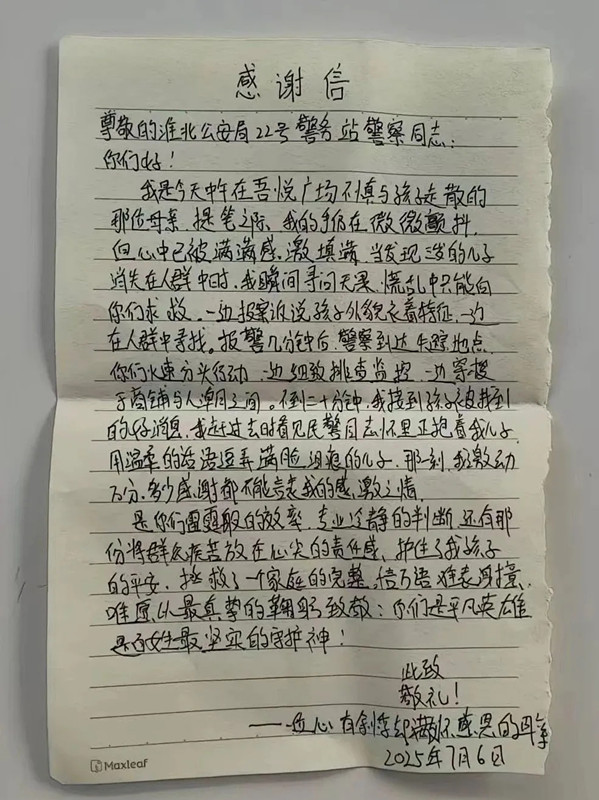 感谢信
尊敬的淮北公安局22号警务站警察同志:
你们好!
我是今天中午在吾悦广场不慎与孩子走散的
那位母亲 提笔之际,我的手仍在微微颤抖,
但心中已被满满感激填满 当发现 的儿子
消失在人群中时,我瞬间 天黑,慌乱中只能向
你们求救。一边报案诉说孩子外貌衣着特征,一边
在人群中寻找。报警几分钟后,警察到达失踪地点,
你们火速分头行动 一边细致排查监控 一边穿梭
于商铺与人潮之间。不到二十分钟,我接到孩子被找到
的好消息,我赶过去时看见民警同志怀里正抱着我儿子
用温柔的话语逗弄满脸泪痕的儿子,那一刻,我激动
万分,多少感谢都不能言表我的感激之情,
是你们雷霆般的效率,专业冷静的判断,还有那
份将群众疾苦放在心尖的责任感,护住了我孩子
的平安,拯救了一个家庭的完整,倍万语难表 ,
唯愿以最真挚的鞠躬致敬:你们是平凡英雄
是百姓最坚实的守护神!
此致
敬礼!
——一位心有余悸却满怀感恩的母亲
2025年7月6日
Maxleaf